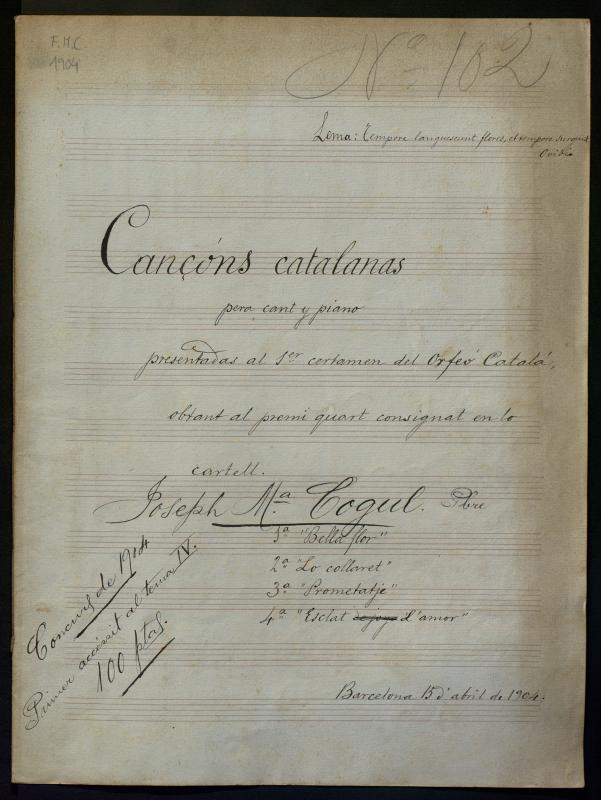 F.M.C.
1904
Nº 102
Lema: Tempore languescunt flores, et tempore surgunt
Ovidi
Cançóns catalanas
pera cant y piano
presentadas al 1er certamen del Orfeó Catalá,
obtant al premi quart consignat en lo
cartell.
Joseph M.ª Cogul. Pbre
1ª "Bella flor"
2ª "Lo collaret"
3ª "Prometatje"
4ª "Esclat de joya d'amor"
Concurs de 1904
Primer accéssit al tema IV.
100 ptas.
Barcelona 15 d'abril de 1904.